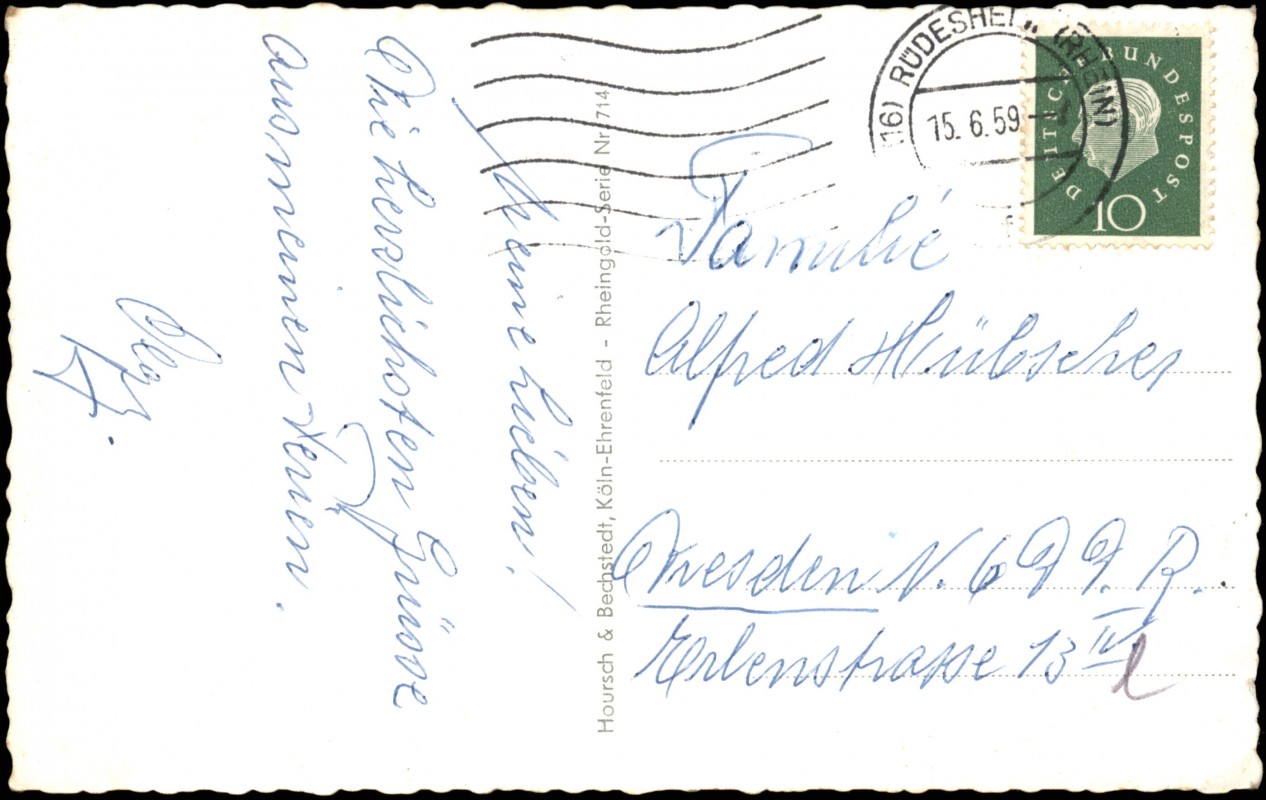 Meine Lieben!
Die herzlichsten Grüsse
aus meinen Ferien.
Hoursch & Bechstedt, Köln-Ehrenfeld - Rheingold-Serie Nr. 714
(16) RÜDESHEIM (RHEIN)
15. 6. 59
DEUTSCHE BUNDESPOST
10
Familie
Alfred Hübscher
Dresden N. 6 DDR.
Erlenstrasse 13 IV
l